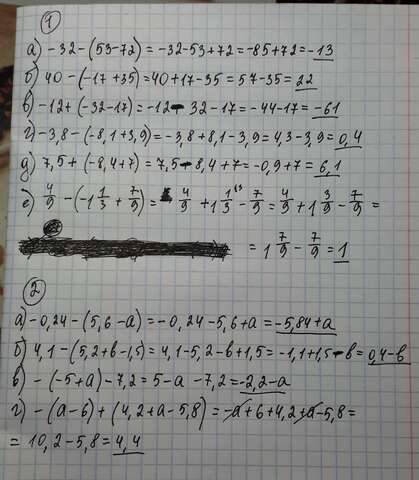 1
а) -32-(53-72)=-32-53+72=-85+72=-13
б) 40-(-17+35)=40+17-35=57-35=22
в) -12+(-32-17)=-12-32-17=-44-17=-61
г) -3,8-(-8,1+3,9)=-3,8+8,1-3,9=4,3-3,9=0,4
д) 7,5+(-8,4+7)=7,5-8,4+7=-0,9+7=6,1
е) 4/9-(-1 1/3+7/9)=4/9+1 1/3-7/9=4/9+1 3/9-7/9=
=1 7/9-7/9=1
2
а) -0,24-(5,6-а)=-0,24-5,6+а=-5,84+а
б) 4,1-(5,2+в-1,5)=4,1-5,2-в+1,5=-1,1+1,5-в=0,4-в
в) -(-5+а)-7,2=5-а-7,2=-2,2-а
г) -(а-6)+(4,2+а-5,8)=-а+6+4,2+а-5,8=
=10,2-5,8=4,4